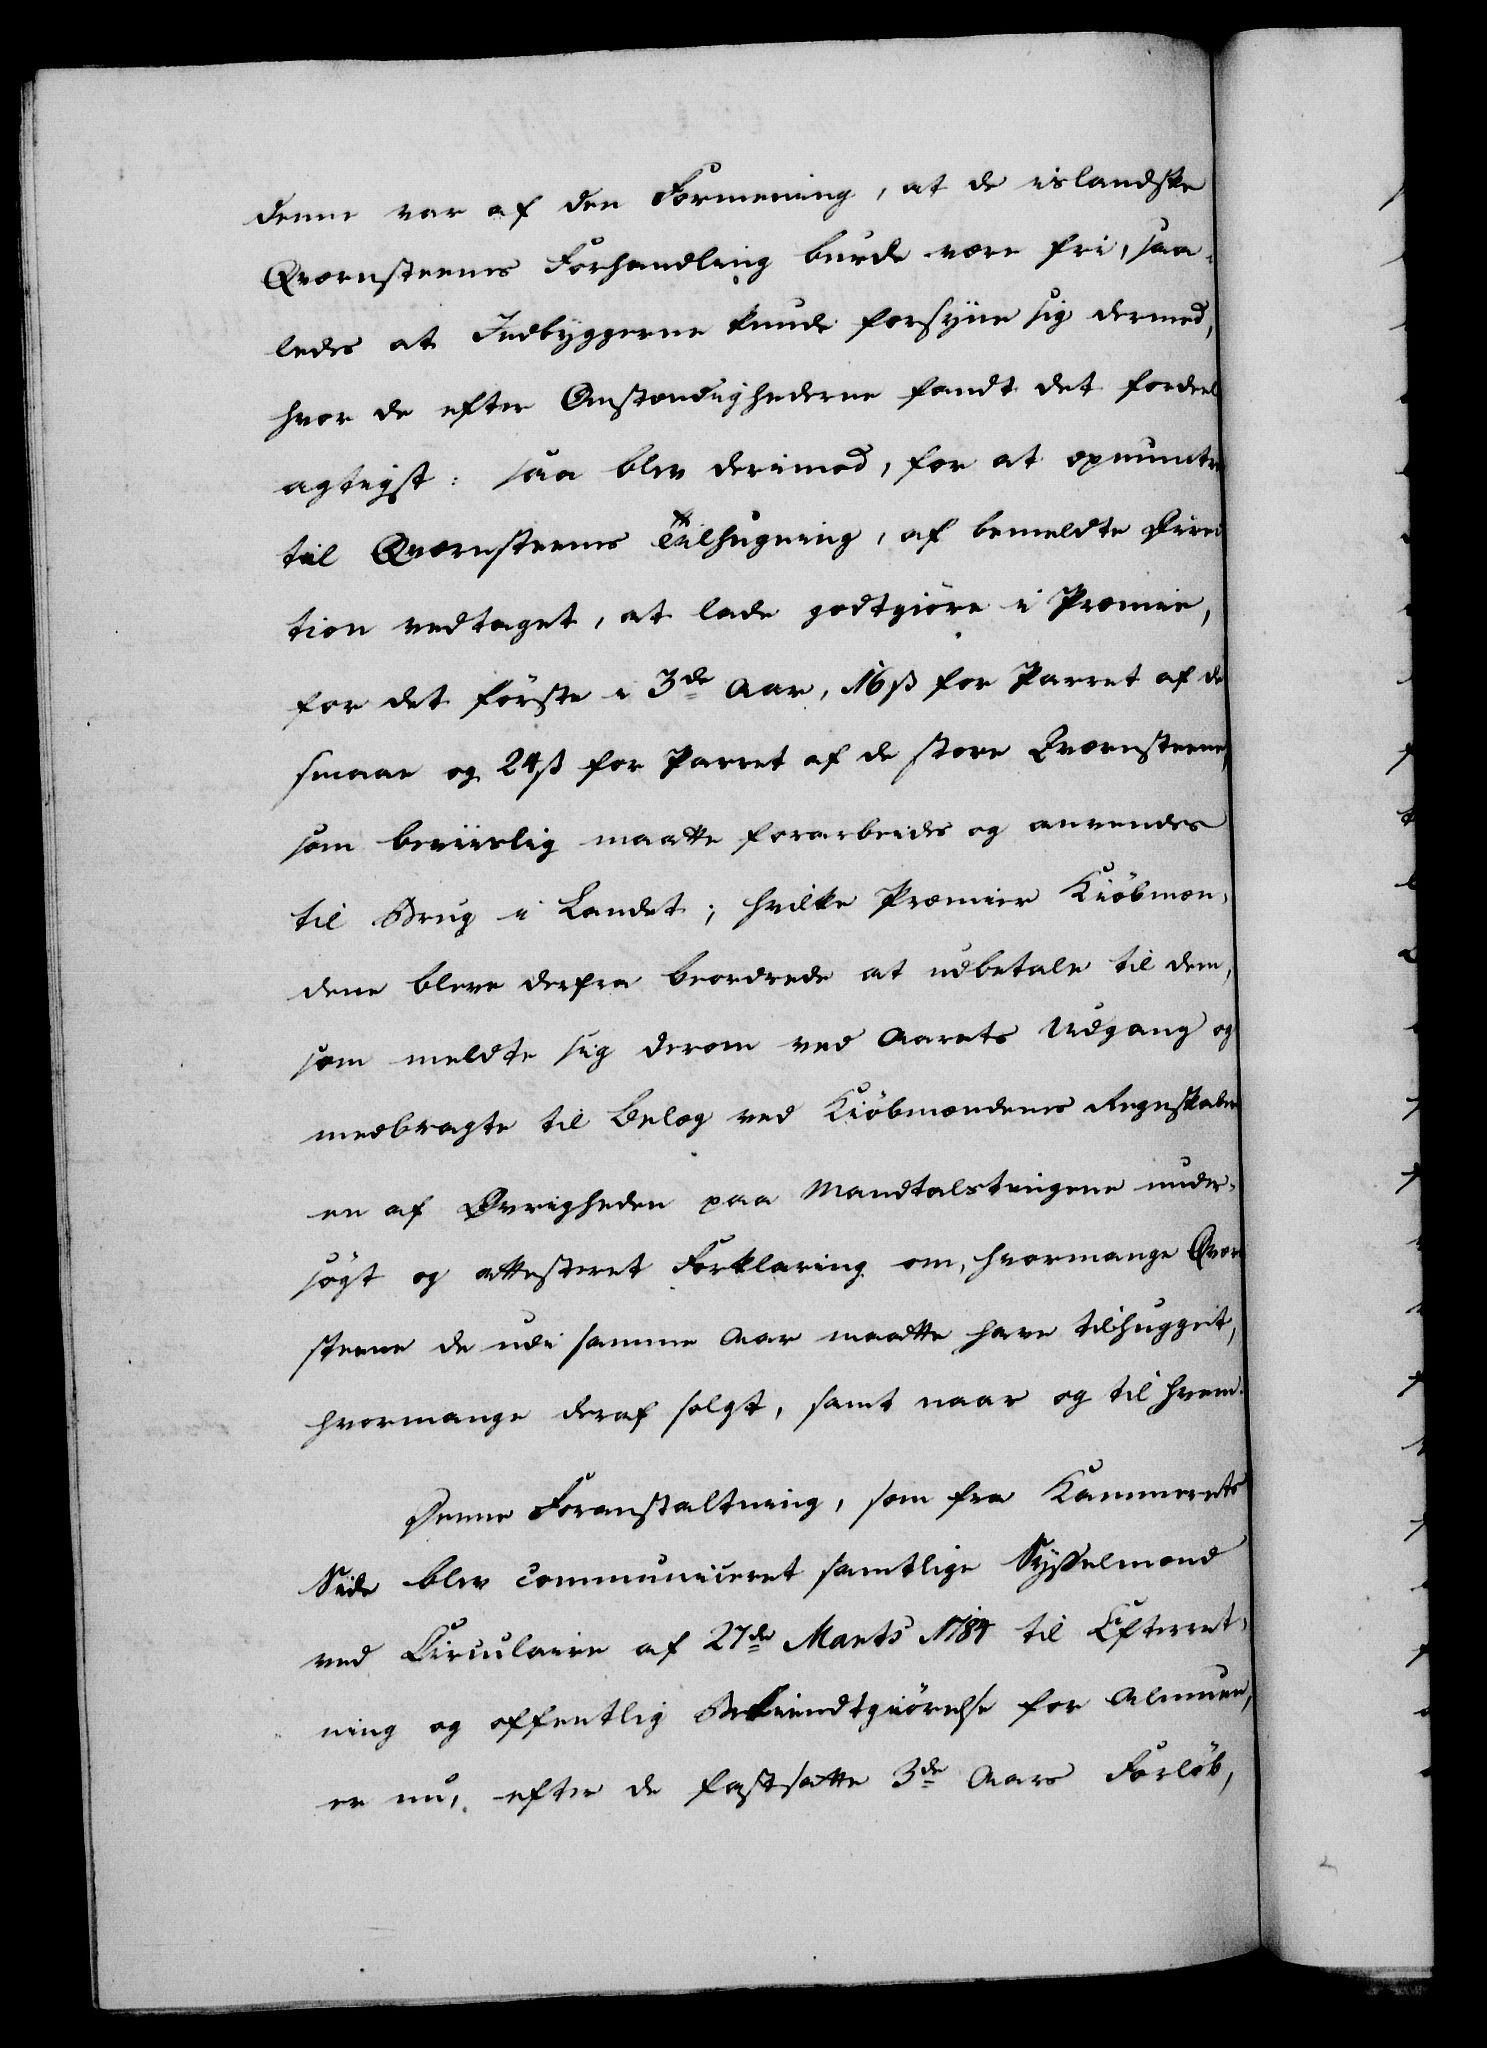 denne var af den Formening, at de islandske
Qværnsteenes Forhandling burde være fri, saa-
ledes at Indbyggerne kunde forsyne sig dermed,
hvor de efter Omstændighederne fandt det fordeel
agtigst: saa blev derimod, for at opmuntre
til Qværnsteenes Tilhugning, af bemeldte Direc
tion vedtaget, at lade godtgiöre i Præmie,
for det förste i 3de Aar, 16 ß for Parret af de
smaae og 24 ß for Parret af de store Qværnsteene,
som beviislig maatte forarbeides og anvendes
til Brug i Landet; hvilke Præmier Kiöbmæn-
dene bleve derfra beordrede at udbetale til dem,
som meldte sig derom ved Aarets Udgang og
medbragte til Belæg ved Kiöbmændenes Regnskaber
en af Øvrigheden paa Mandtalstingene under-
sögt og attesteret Forklaring om, hvormange Qværn
steene de udi samme Aar maatte have tilhugget,
hvormange deraf solgt, samt naar og til hvem.
Denne Foranstaltning, som fra Kammerets
Side blev communiceret samtlige Sysselmænd
ved Circulaire af 27de Marts 1784 til Efterret-
ning og offentlig Bekiendtgiörelse for Almuen,
er nu, efter de fastsatte 3de Aars Forløb,